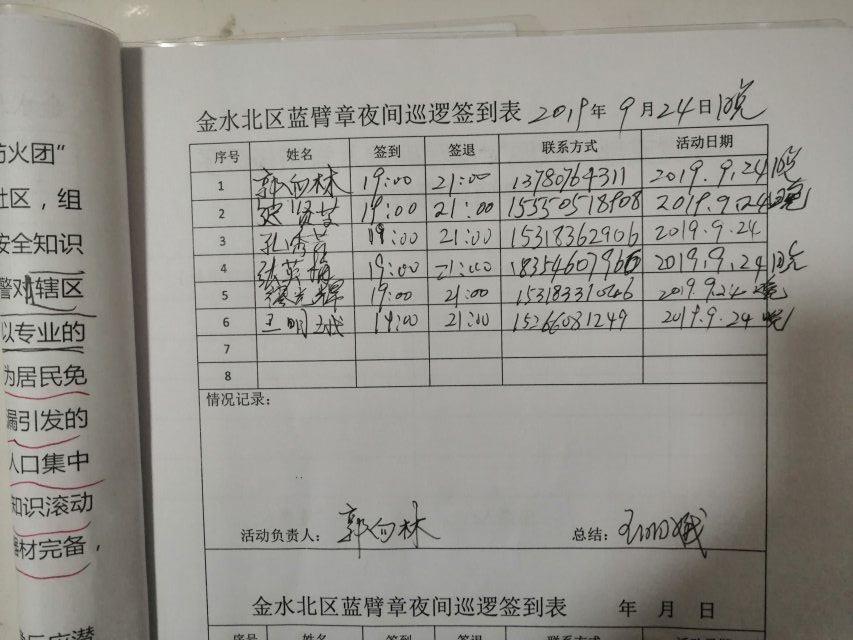 防火团”
社区，组
安全知识
警对辖区
以专业的
为居民免
漏引发的
人口集中
知识滚动
器材完备，
金水北区蓝臂章夜间巡逻签到表 2019年 9月24日晚
序号 姓名 签到 签退 联系方式 活动日期
1 郭向林 19:00 21:00 13780764311 2019.9.24晚
2 19:00 21:00 15550518908 2019.9.24晚
3 孔秀芬 19:00 21:00 15318362906 2019.9.24
4 张英梅 19:00 21:00 18354607966 2019.9.24晚
5 19:00 21:00 15318331046 2019.9.24晚
6 王明斌 19:00 21:00 15266081249 2019.9.24晚
7
8
情况记录：
活动负责人： 郭向林 总结： 王明斌
金水北区蓝臂章夜间巡逻签到表 年 月 日
序号 姓名 签到 签退 联系方式 活动日期